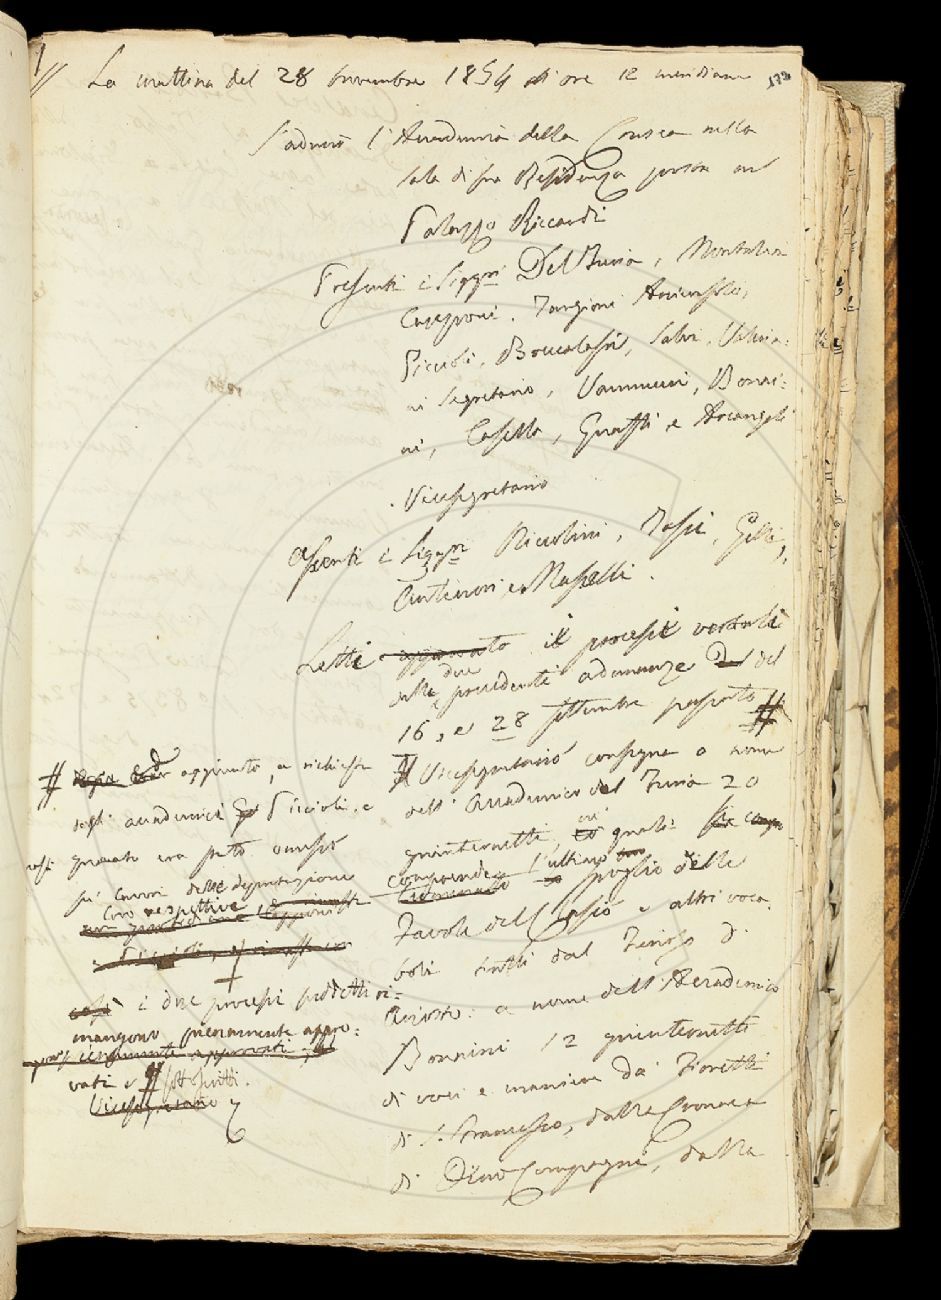 La mattina del 28 novembre 1854 a ore 12 meridiane
172
S'adunò l'Accademia della Crusca nella
sala di sua Residenza posta in
Palazzo Riccardi
Presenti i Sigg.ri Del Furia, Montalvi
Capponi. Targioni
Piccioli, Brucalassi, Salvi, Valeria:
ni Segretario, Vannucci, Bonai:
ni, Casella, e Arcangeli
Vicesegretario
Assenti i Sigg.ri Niccolini, Tassi, Gelli,
Centofanti e Maselli.
Letti il processi verbali
delle due precedenti adunanze del
16, e 28 settembre passato #
Il Vicesegretario consegna a nome
dell'Accademico del Furia 20
quinternetti, quali
comprendere l'ultimo spoglio delle
Tavole dell'Ariosto e altri voca:
boli tratti dal Furioso di
Ariosto: a nome dell'Accademico
Bonaini 12 quinternetti
di voci e maniere da' Fioretti
di S. Francesco, dalla Cronaca
di Dino Compagni, dalla
# aggiunto, a richiesta
degli accademici Piccioli, e
quanto era stato omesso
su' lavori delle deputazione
loro respettive
i due processi suddetti ri:
mangono pienamente appro:
vati e sottoscritti.